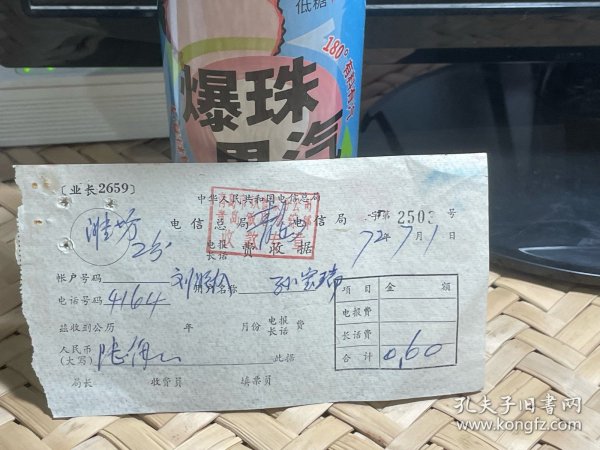 低糖
180°
爆珠
果汽
[业长2659]
中华人民共和国电信总局
电信总局 电信局 字第 2503 号
电报
长话 费收据
72年7月1日
潍坊
2分
收款
帐户号码
用户名称 孙宏瑞
电话号码 4164
兹收到公历 年 月份 电报
长话 费
人民币
(大写)
此据
局长 收费员 填票员
项目 金额
电报费
长话费
合计 0.60
孔夫子旧书网
www.kongfz.com